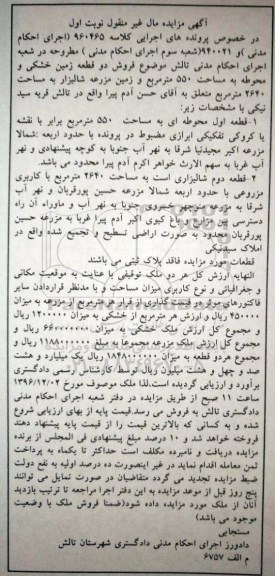 آگهی مزایده مال غیر منقول نوبت اول
در خصوص پرونده های اجرایی کلاسه ۹۶۰۴۶۵ (اجرای احکام
مدنی )و ۹۴۰۰۲۱(شعبه سوم اجرای احکام مدنی ) مطروحه در شعبه
اجرای احکام مدنی تالش موضوع فروش دو قطعه زمین خشکی و
محوطه به مساحت ۵۵۰ مترمربع و زمین مزرعه شالیزار به مساحت
۲۶۴۰ مترمربع متعلق به آقای حسن آدم پیرا واقع در تالش قریه سید
نیکی با مشخصات زیر:
۱-قطعه اول محوطه ای به مساحت ۵۵۰ مترمربع برابر با نقشه
یا کروکی تفکیکی ابرازی مضبوط در پرونده با حدود اربعه :شمالا
مزرعه اکبر مجیدنیا شرقا به نهر آب جنوبا به کوچه پیشنهادی و نهر
آب غربا به سهم الارث خواهر اکرم آدم پیرا محدود می باشد.
۲-قطعه دوم شالیزاری است به مساحت ۲۶۴۰ مترمربع با کاربری
مزروعی با حدود اربعه شمالا مزرعه حسین پورقربان و نهر آب
شرقا به مزرعه منوچهر خسروی جنوبا به نهر آب و ماوراء آن راه
دسترسی بین مزارع و باغ کیوی اکبر آدم پیرا غربا به مزرعه حسین
پورقربان محدود به صورت اراضی تسطیح و تجمیع شده واقع در
املاک سیدنیکی
قطعات مورد مزایده فاقد پلاک ثبتی می باشند
النهایه ارزش کل هر دو ملک توقیفی با عنایت به موقعیت مکانی
و جغرافیائی و نوع کاربری میزان مساحت و با مدنظر قراردادن سایر
فاکتورهای موثر در قیمت گذاری از قرار هر مترمربع از مزرعه به میزان
۴۵۰۰۰۰ ریال و ارزش هر مترمربع از خشکی به میزان ۱۲۰۰۰۰۰ ریال
و مجموع کل ارزش ملک خشکی به میزان ۶۶۰۰۰۰۰۰۰ ریال و
مجموع کل ارزش ملک مزرعه مجموعا به مبلغ ۱۱۸۸۰۰۰۰۰۰ ریال و
مجموع هردو قطعه به میزان ۱۸۴۸۰۰۰۰۰۰ ریال یک میلیارد و هشت
صد و چهل و هشت میلیون ریال توسط کارشناس رسمی دادگستری
برآورد و ارزیابی گردیده است.لذا ملک موصوف مورخ ۱۳۹۶/۱۲/۰۲
ساعت ۱۱ صبح از طریق مزایده در دفتر شعبه اجرای احکام مدنی
دادگستری تالش به فروش می رسد.قیمت پایه از بهای ارزیابی شروع
شده و به کسانی که بالاترین قیمت را از قیمت پایه پیشنهاد دهند
فروخته خواهد شد و ۱۰ درصد مبلغ پیشنهادی فی المجلس از برنده
مزایده دریافت و نامبرده مکلف است حداکثر تا یکماه به پرداخت
ثمن معامله اقدام نماید در غیر اینصورت ده درصد اولیه به نفع دولت
ضبط مزایده تجدید می گردد متقاضیان در صورت تمایل می توانند
پنج روز قبل از موعد مزایده به این دفتر اجرا مراجعه تا ترتیب بازدید
آنان از ملک مورد مزایده داده شود(ضمنا فروش ملک با وضعیت
موجود می باشد)
مستجابی
دادورز اجرای احکام مدنی دادگستری شهرستان تالش
م الف ۶۷۵۷